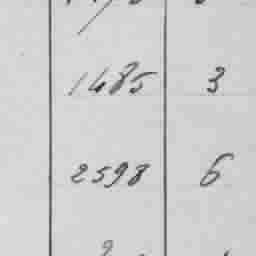 1485 3
2598 6